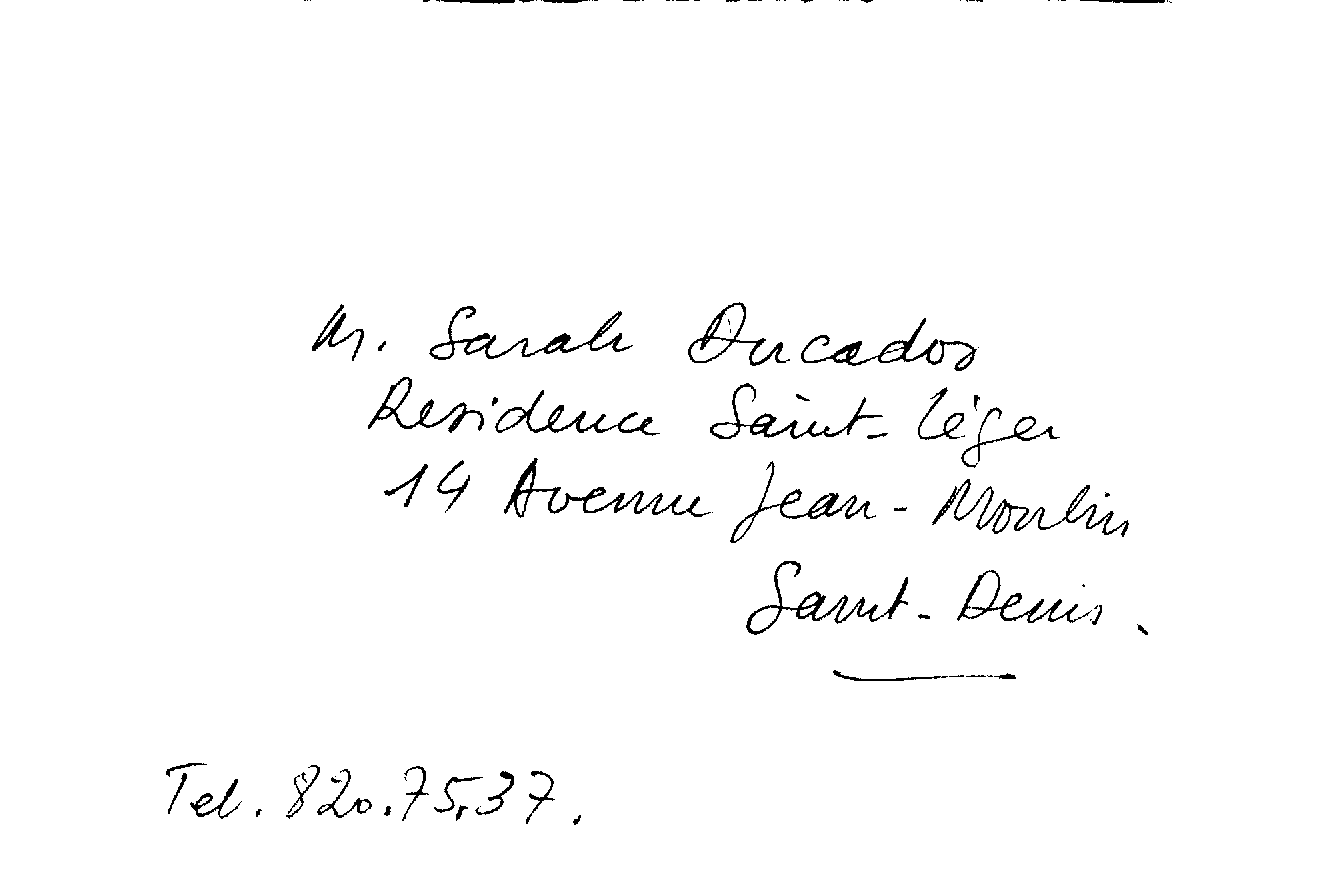 M. Sarah Ducados
Residence Saint-Léger
14 Avenue Jean-Moulin
Saint-Denis.
Tel. 820.75.37.